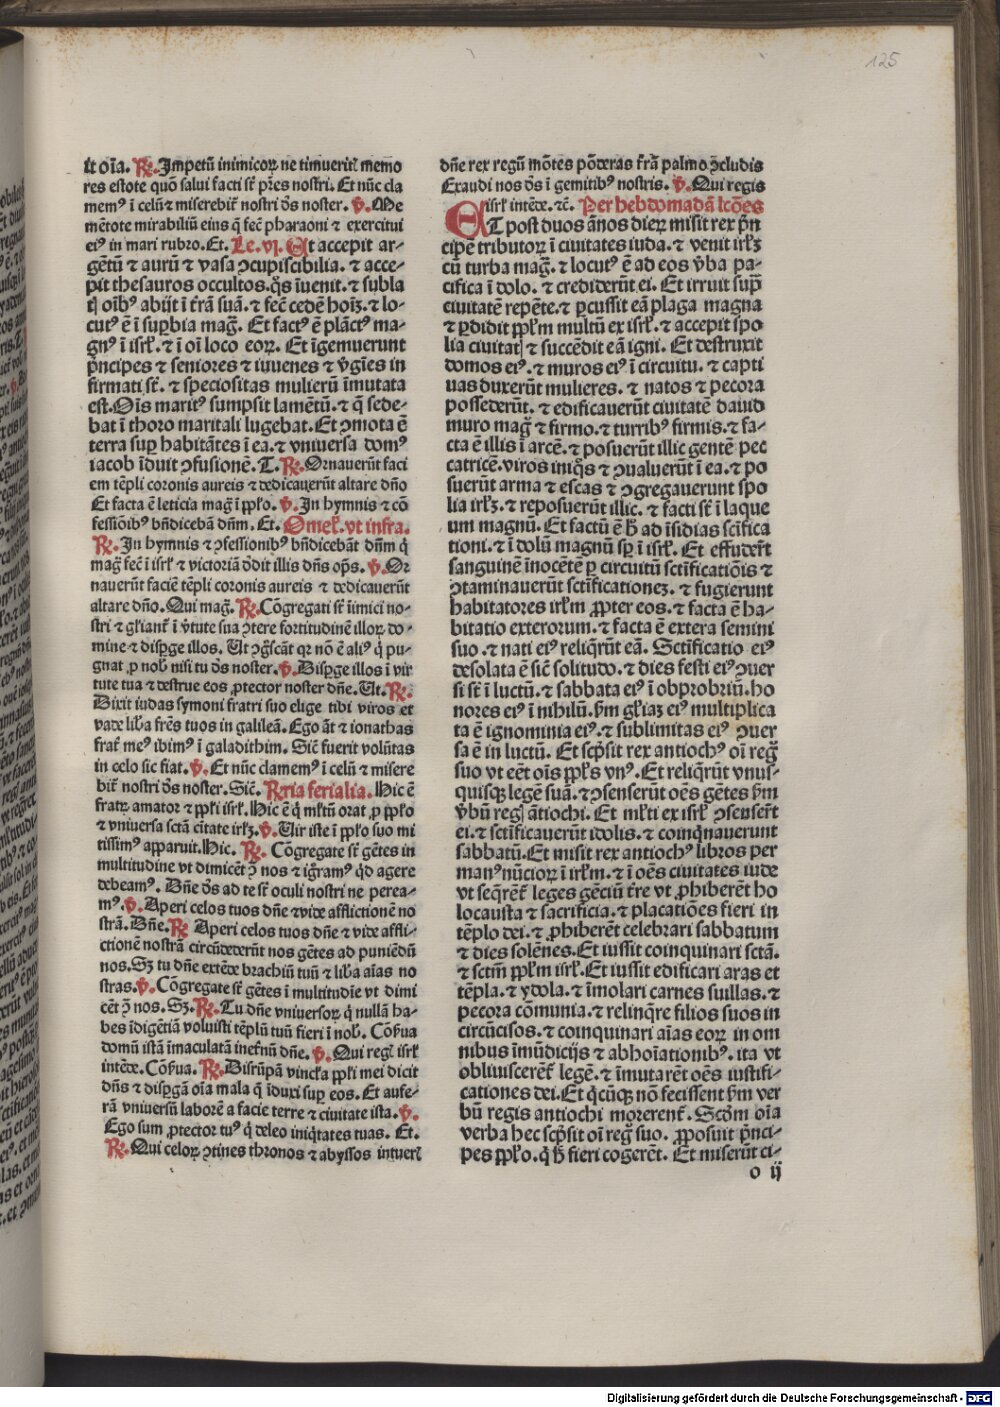 125
it oīa. ℞. Impetū inimicoꝝ ne timueritꝭ memo
res estote quō salui facti st̄ pr̄es nostri. Et nūc cla
memꝰ ī celū ⁊ miserebit̄ nostri ds̄ noster. ℣. Me
mētote mirabiliū eius q̄ fec̄ pharaoni ⁊ exercitui
eiꝰ in mari rubro. Et. Le. vj. Et accepit ar-
gētū ⁊ aurū ⁊ vasa ꝯcupiscibilia. ⁊ acce-
pit thesauros occultos. q̄s īuenit. ⁊ subla
tꝭ oībꝰ abijt ī t̄rā suā. ⁊ fec̄ cedē hoīꝫ. ⁊ lo-
cutꝰ ē ī suꝑbia maḡ. Et factꝰ ē plāctꝰ ma-
gnꝰ ī isrl̄. ⁊ ī oī loco eoꝝ. Et īgemuerunt
pn̄cipes ⁊ seniores ⁊ iuuenes ⁊ v̄gīes in
firmati st̄. ⁊ speciositas mulierū īmutata
est. Oīs maritꝰ sumpsit lamētū. ⁊ q̄ sede-
bat ī thoro maritali lugebat. Et ꝯmota ē
terra suꝑ habitātes ī ea. ⁊ vniuersa domꝰ
iacob īduit ꝯfusionē. T. ℞. Ornauerūt faci
em tēpli coronis aureis ⁊ dedicauerūt altare dn̄o
Et facta ē leticia maḡ ī ppl̄o. ℣. In hymnis ⁊ cō
fessiōibꝰ bn̄dicebā dn̄m. Et. Omel̄. vt infra.
℞. In hymnis ⁊ ꝯfessionibꝰ bn̄dicebāt dn̄m q̄
maḡ fec̄ ī isrl̄ ⁊ victoriā dedit illis dn̄s op̄s. ℣. Or
nauerūt faciē tēpli coronis aureis ⁊ dedicauerūt
altare dn̄o. Qui maḡ. ℞. Cōgregati st̄ īimici no-
stri ⁊ gl̄iant̄ ī v̄tute sua ꝯtere fortitudinē illoꝝ do-
mine ⁊ disꝑge illos. Ut ꝯgscāt qꝛ nō ē aliꝰ q̄ pu-
gnat ꝓ nob̄ nisi tu ds̄ noster. ℣. Disꝑge illos ī vir
tute tua ⁊ destrue eos ꝓtector noster dn̄e. Ut. ℞.
Dixit iudas symoni fratri suo elige tibi viros et
vade lib̄a fr̄es tuos in galileā. Ego āt ⁊ ionathas
frat̄ meꝰ ibimꝰ ī galadithim. Sic̄ fuerit volūtas
in celo sic fiat. ℣. Et nūc clamemꝰ ī celū ⁊ misere
bit̄ nostri ds̄ noster. Sic̄. Rn̄ria ferialia. Hic ē
fratꝝ amator ⁊ ppl̄i isrl̄. Hic ē q̄ ml̄tū orat ꝓ ppl̄o
⁊ vniuersa sctā ciuitate irl̄ꝫ. ℣. Uir iste ī ppl̄o suo mi
tissimꝰ apparuit. Hic. ℞. Cōgregate st̄ gētes in
multitudine vt dimicēt ꝯ nos ⁊ iḡramꝰ qd̄ agere
debeamꝰ. Dn̄e ds̄ ad te st̄ oculi nostri ne perea-
mꝰ. ℣. Aperi celos tuos dn̄e ⁊ vide afflictionē no
strā. Dn̄e. ℞. Aperi celos tuos dn̄e ⁊ vide affli-
ctionē nostrā circūdederūt nos gētes ad puniēdū
nos. Sꝫ tu dn̄e extēde brachiū tuū ⁊ lib̄a aīas no
stras. ℣. Cōgregate st̄ gētes ī multitudīe vt dimi
cēt ꝯ nos. Sꝫ. ℞. Tu dn̄e vniuersoꝝ q̄ nullā ha-
bes īdigētiā voluisti tēplū tuū fieri ī nob̄. Cōẜua
domū istā īmaculatā inet̄nū dn̄e. ℣. Qui regꝭ isrl̄
intēde. Cōẜua. ℞. Disrūpā vincl̄a ppl̄i mei dicit
dn̄s ⁊ disꝑgā oīa mala q̄ īduxi suꝑ eos. Et aufe-
rā vniuersū laborē a facie terre ⁊ ciuitate ista. ℣.
Ego sum ꝓtector tuꝰ q̄ deleo iniq̄tates tuas. Et.
℞. Qui celoꝝ ꝯtines thronos ⁊ abyssos intuerꝭ
dn̄e rex regū mōtes pōderas t̄rā palmo ꝯcludis
Exaudi nos ds̄ ī gemitibꝰ nostris. ℣. Qui regis
isrl̄ intēde. ⁊c̄. Per hebdomadā lcōes
ET post duos ānos dieꝝ misit rex pn̄
cipē tributoꝝ ī ciuitates iuda. ⁊ venit irl̄ꝫ
cū turba maḡ. ⁊ locutꝰ ē ad eos v̄ba pa-
cifica ī dolo. ⁊ crediderūt ei. Et irruit suꝑ
ciuitatē repēte. ⁊ ꝑcussit eā plaga magna
⁊ ꝑdidit ppl̄m multū ex isrl̄. ⁊ accepit spo
lia ciuitatꝭ ⁊ succēdit eā igni. Et destruxit
domos eiꝰ. ⁊ muros eiꝰ ī circuitu. ⁊ capti
uas duxerūt mulieres. ⁊ natos ⁊ pecora
possederūt. ⁊ edificauerūt ciuitatē dauid
muro maḡ ⁊ firmo. ⁊ turribꝰ firmis. ⁊ fa-
cta ē illis ī arcē. ⁊ posuerūt illic gentē pec
catricē. viros iniq̄s ⁊ ꝯualuerūt ī ea. ⁊ po
suerūt arma ⁊ escas ⁊ ꝯgregauerunt spo
lia irl̄ꝫ. ⁊ reposuerūt illic. ⁊ facti st̄ ī laque
um magnū. Et factū ē h̄ ad īsidias scīfica
tioni. ⁊ ī dolū magnū sꝑ ī isrl̄. Et effuder̄t
sanguinē inocētē ꝑ circuitū sctīficatiōis ⁊
ꝯtaminauerūt sctīficationeꝫ. ⁊ fugierunt
habitatores irl̄m ꝓpter eos. ⁊ facta ē ha-
bitatio exterorum. ⁊ facta ē extera semini
suo. ⁊ nati eiꝰ reliq̄rūt eā. Sctīficatio eiꝰ
desolata ē sic̄ solitudo. ⁊ dies festi eiꝰ ꝯuer
si st̄ ī luctū. ⁊ sabbata eiꝰ ī obprobriū. ho
nores eiꝰ ī nihilū. ẜm gl̄iaꝫ eiꝰ multiplica
ta ē ignominia eiꝰ. ⁊ sublimitas eiꝰ ꝯuer
sa ē in luctū. Et scp̄sit rex antiochꝰ oī reḡ
suo vt eēt oīs ppl̄s vnꝰ. Et reliq̄rūt vnus-
quisqꝫ legē suā. ⁊ ꝯsenserūt oēs gētes ẜm
v̄bū regꝭ ātiochi. Et ml̄ti ex isrl̄ ꝯsenser̄t
ei. ⁊ sctīficauerūt idolis. ⁊ coinq̄nauerunt
sabbatū. Et misit rex antiochꝰ libros per
manꝰ nūcioꝝ ī irl̄m. ⁊ ī oēs ciuitates iude
vt seq̄rēt̄ leges gēciū t̄re vt ꝓhiberēt ho
locausta ⁊ sacrificia. ⁊ placatiōes fieri in
tēplo dei. ⁊ ꝓhiberēt celebrari sabbatum
⁊ dies solēnes. Et iussit coinquinari sctā.
⁊ sctm̄ ppl̄m isrl̄. Et iussit edificari aras et
tēpla. ⁊ ydola. ⁊ īmolari carnes suillas. ⁊
pecora cōmunia. ⁊ relinq̄re filios suos in
circūcisos. ⁊ coinquinari aīas eoꝝ in om
nibus īmūdicijs ⁊ abhoīationibꝰ. ita vt
obliuiscerēt̄ legē. ⁊ īmutarēt oēs iustifi-
cationes dei. Et q̄cūqꝫ nō fecissent ẜm ver
bū regis antiochi morerent̄. Scd̄m oīa
verba hec scp̄sit oī reḡ suo. ꝓposuit pn̄ci-
pes ppl̄o. q̄ h̄ fieri cogerēt. Et iusserūt ci-
o ij
Digitalisierung gefördert durch die Deutsche Forschungsgemeinschaft - DFG